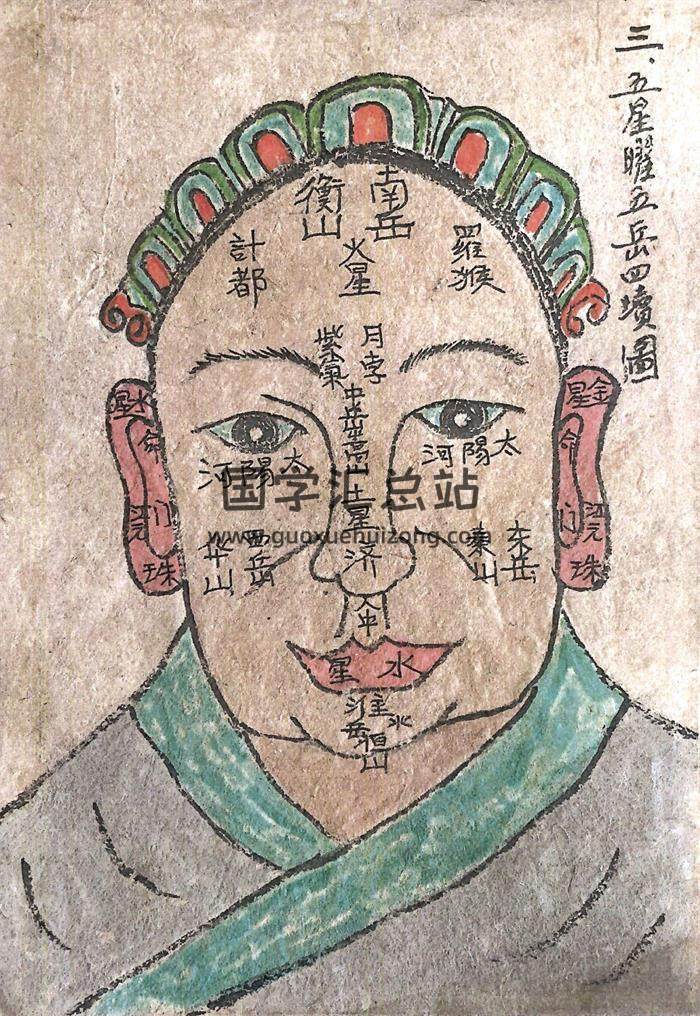 三、五星曜五岳四墳圖
南岳
衡山
火星
羅猴
計都
月孛
紫氣
中岳嵩山土星
济
太陽
河
太陽
河
金星
命门
珠
水星
命门
珠
东岳
東山
西岳
华山
人中
水星
淮
岳恒山
国学汇总站
www.guoxuehuizong.com